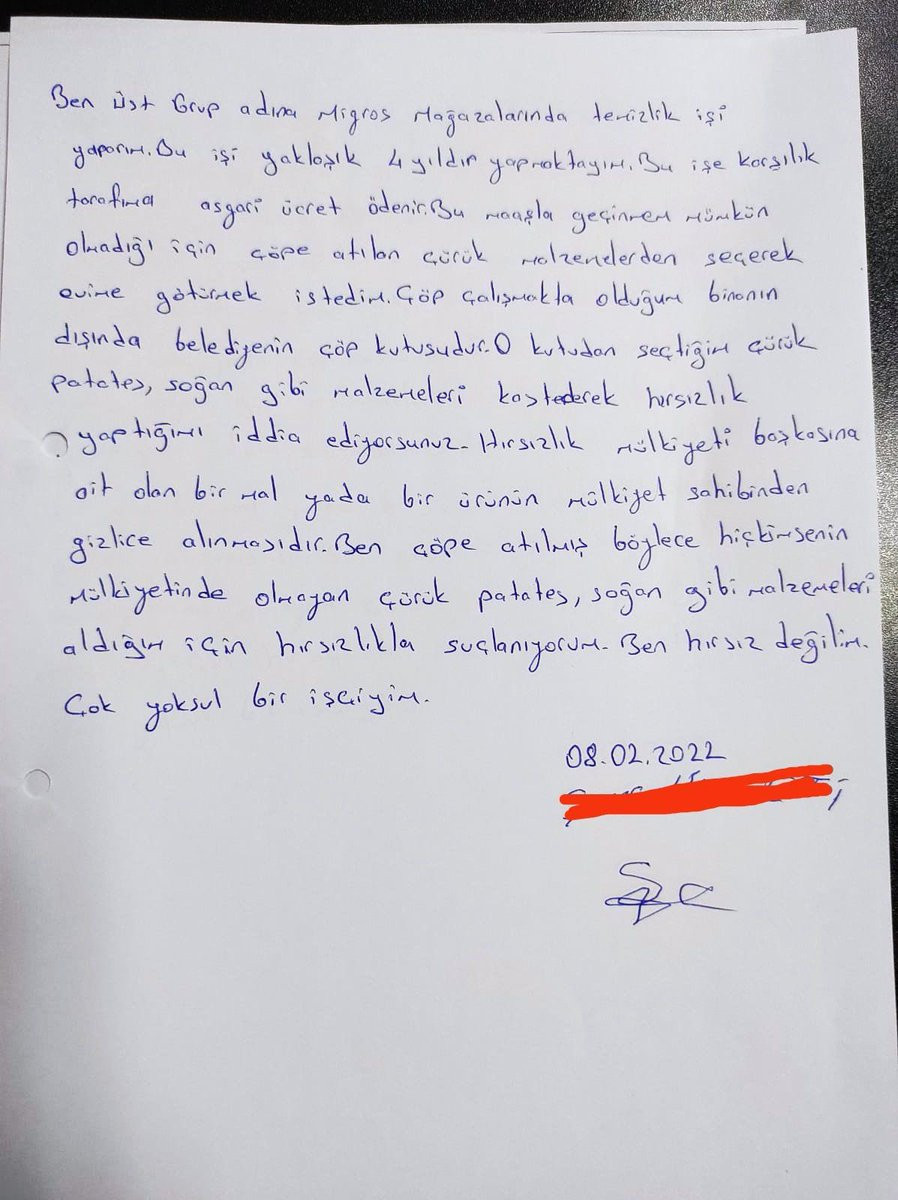 Ben üst Grup adına Migros Mağazalarında temizlik işi
yaparım. Bu işi yaklaşık 4 yıldır yapmaktayım. Bu işe karşılık
tarafıma asgari ücret ödenir. Bu maaşla geçinmem mümkün
olmadığı için çöpe atılan çürük malzemelerden seçerek
evime götürmek istedim. Çöp çalışmakta olduğum binanın
dışında belediyenin çöp kutusudur. O kutudan seçtiğim çürük
patates, soğan gibi malzemeleri kastederek hırsızlık
yaptığımı iddia ediyorsunuz. Hırsızlık mülkiyeti başkasına
ait olan bir mal yada bir ürünün mülkiyet sahibinden
gizlice alınmasıdır. Ben çöpe atılmış böylece hiçkimsenin
mülkiyetinde olmayan çürük patates, soğan gibi malzemeleri
aldığım için hırsızlıkla suçlanıyorum. Ben hırsız değilim.
Çok yoksul bir işçiyim.
08.02.2022